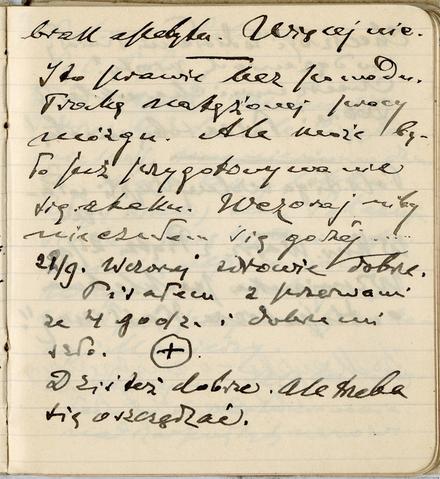 brak apetytu. Więcej nie.
I to prawie bez powodu.
Trochę natężonej pracy
mózgu. Ale może by-
ło już przygotowywanie
się ataku. Wczoraj niby
nie czułem się gorzej....
21/9. Wczoraj zdrowie dobrze.
Pisałem z przerwami
ze 4 godz. i dobrze mi
szło. +
Dziś też dobrze. Ale trzeba
się oszczędzać.